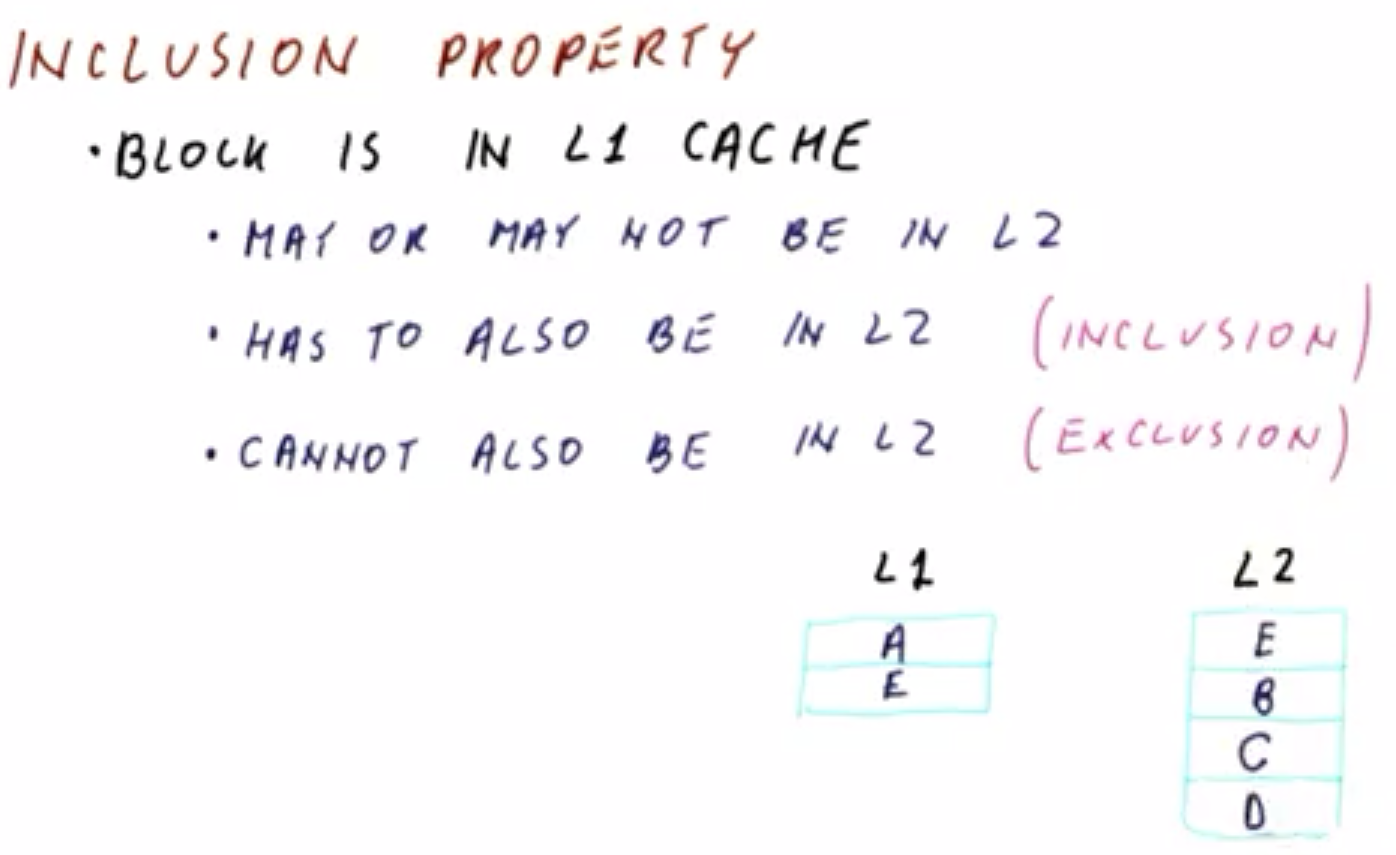 INCLUSION PROPERTY
• BLOCK IS IN L1 CACHE
• MAY OR MAY NOT BE IN L2
• HAS TO ALSO BE IN L2 (INCLUSION)
• CANNOT ALSO BE IN L2 (EXCLUSION)
L1 L2
A E
E B
C
D